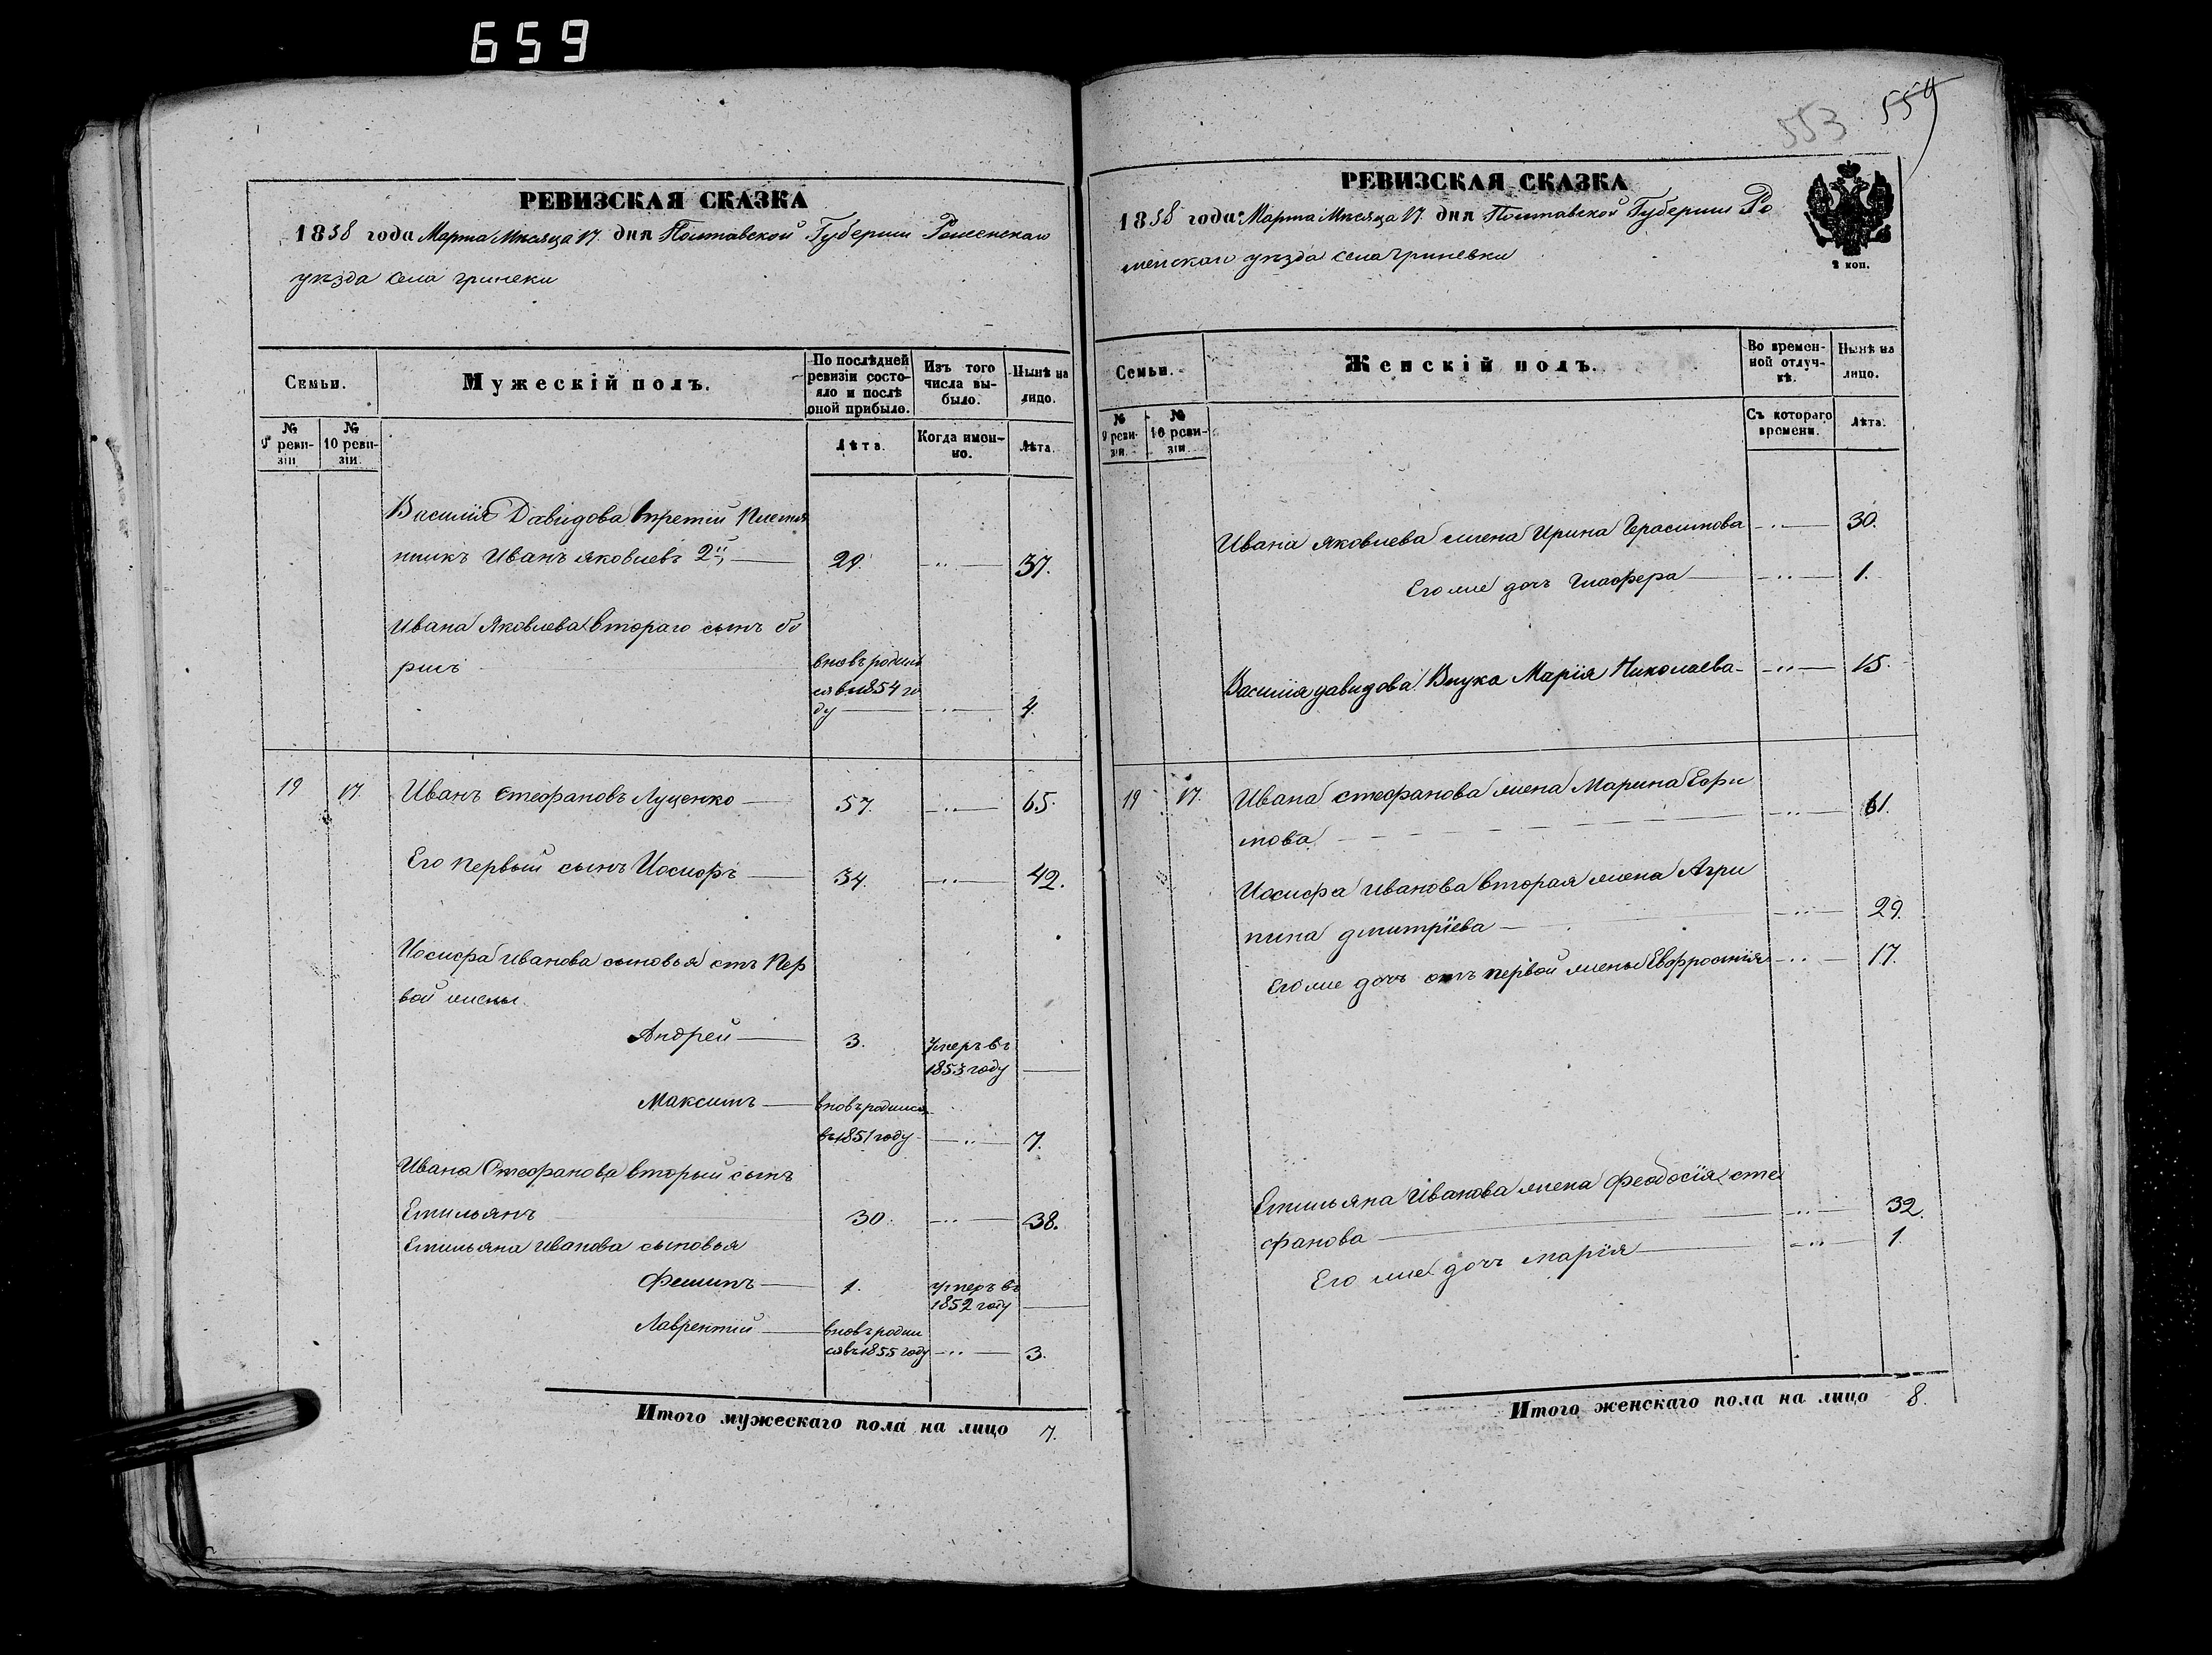 659
553 559
РЕВИЗСКАЯ СКАЗКА
1858 года Марта Месяца 17. дня Полтавской Губернiи Роменскаго
уѣзда села гриневки
Семьи.
Мужескiй полъ.
По послѣдней ревизiи состояло и послѣ оной прибыло.
Изъ того числа выбыло.
Нынѣ на лицо.
№ 9 ревизiи
№ 10 ревизiи.
Лѣта.
Когда именно.
Лѣта.
Василiя Давидова третiй Племян
никъ Иванъ Яковлевъ 2й, — 29. —..— 37.
Ивана Яковлева втораго сынъ бо
рисъ вновь родил
ся въ 1854 го
ду — —..— 4.
19 17. Иванъ Стефановъ Луценко — 57. —..— 65.
Его первый сынъ Иосифъ — 34. —..— 42.
Иосифа иванова сыновья отъ Пер
вой жены.
Андрей — 3. Умеръ въ
1853 году —
Максимъ — вновь родился
въ 1851 году —..— 7.
Ивана Стефанова вторый сынъ
Емильянъ 30. —..— 38.
Емильяна иванова сыновья
Филипъ — 1. умеръ въ
1852 году —
Лаврентiй — вновь родил
ся въ 1855 году —..— 3.
Итого мужескаго пола на лицо 7.
РЕВИЗСКАЯ СКАЗКА
1858 года Марта Месяца 17. дня Полтавской Губернiи Ро
менскаго уѣзда села гриневки
2 коп.
Семьи.
Женскiй полъ.
Во временной отлучкѣ.
Нынѣ на лицо.
№ 9 ревизiи.
№ 10 ревизiи.
Съ котораго времени.
Лѣта.
Ивана Яковлева жена Ирина Герасимова —..— 30.
Его же дочь Глафера — —..— 1.
Василiя давидова Внука Марiя Николаева —..— 15.
19 17. Ивана стефанова жена Марина Ефи
мова —..— 61.
Иосифа иванова вторая жена Агри
пина дмитрiева — —..— 29.
Его же дочь отъ первой жены Евфросинiя —..— 17.
Емильяна Иванова жена феодосiя сте
фанова — —..— 32.
Его же дочь марiя — —..— 1.
Итого женскаго пола на лицо 8.